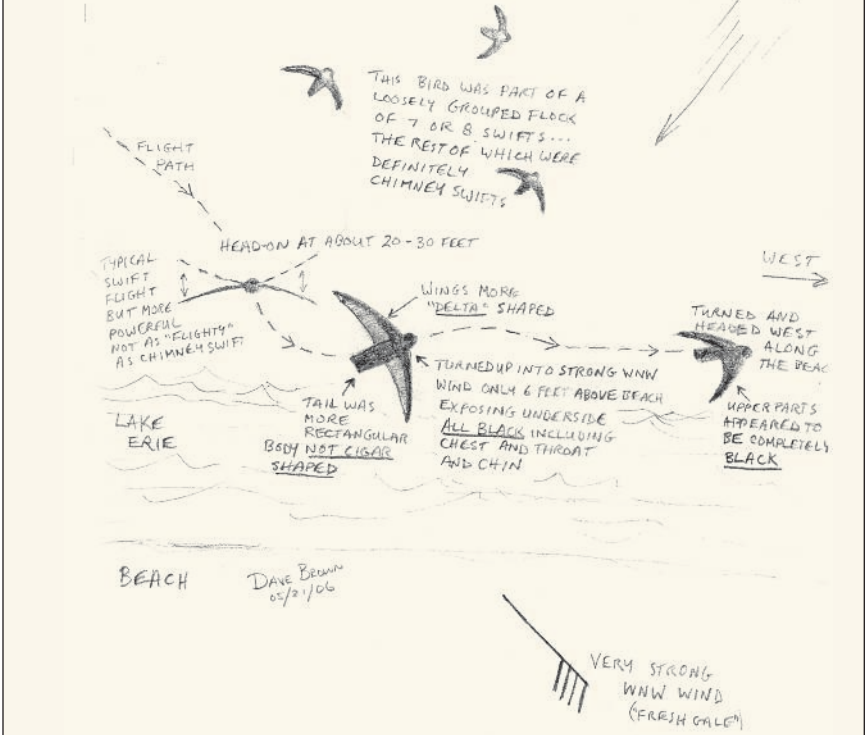 THIS BIRD WAS PART OF A
LOOSELY GROUPED FLOCK
OF 7 OR 8 SWIFTS...
THE REST OF WHICH WERE
DEFINITELY
CHIMNEY SWIFTS
FLIGHT
PATH
HEAD-ON AT ABOUT 20-30 FEET
TYPICAL
SWIFT
FLIGHT
BUT MORE
POWERFUL
NOT AS "FLIGHTY"
AS CHIMNEY SWIFT
WEST
WINGS MORE
"DELTA" SHAPED
TURNED AND
HEADED WEST
ALONG
THE BEAC
TURNED UP INTO STRONG WNW
WIND ONLY 6 FEET ABOVE BEACH
EXPOSING UNDERSIDE
ALL BLACK INCLUDING
CHEST AND THROAT
AND CHIN
TAIL WAS
MORE
RECTANGULAR
BODY NOT CIGAR
SHAPED
UPPERPARTS
APPEARED TO
BE COMPLETELY
BLACK
LAKE
ERIE
BEACH
DAVE BROWN
05/21/06
VERY STRONG
WNW WIND
("FRESH GALE")